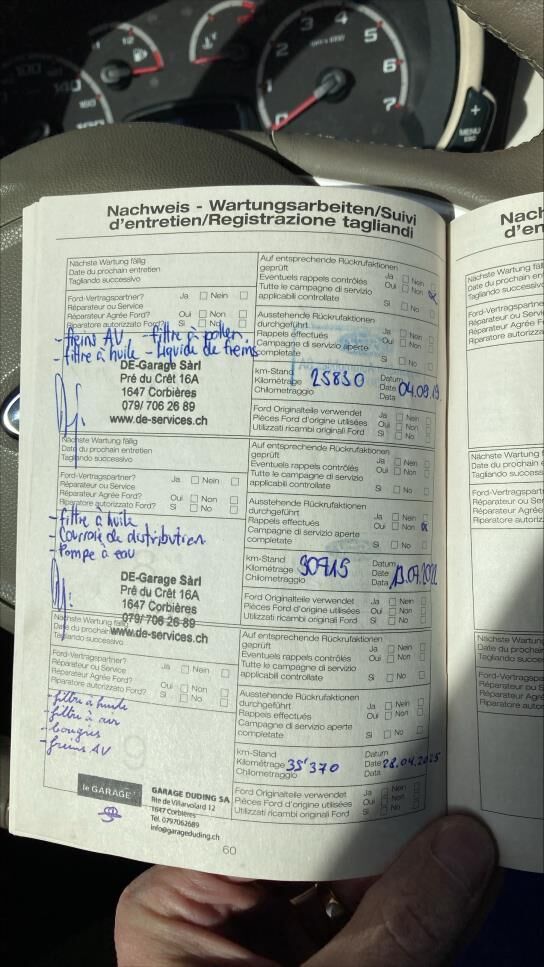 5
4
6
3
2
7
1
0
+
MENU
ESC
Nachweis - Wartungsarbeiten/Suivi
d'entretien/Registrazione tagliandi
Nächste Wartung fällig
Date du prochain entretien
Tagliando successivo
Ford-Vertragspartner? Ja Nein
Réparateur ou Service
Réparateur Agrée Ford? Oui Non
Riparatore autorizzato Ford? Si No
- freins AV - filtre à pollen
- filtre à huile - Liquide de freins
DE-Garage Sàrl
Pré du Crêt 16A
1647 Corbières
079/ 706 26 89
www.de-services.ch
Auf entsprechende Rückrufaktionen
geprüft Ja Nein
Eventuels rappels contrôlés Oui Non
Tutte le campagne di servizio
applicabili controllate Si No
Ausstehende Rückrufaktionen
durchgeführt Ja Nein
Rappels effectués Oui Non
Campagne di servizio aperte
completate Si No
km-Stand
Kilométrage 25830
Chilometraggio
Datum
Date 04.09.19
Data
Ford Originalteile verwendet Ja Nein
Pièces Ford d'origine utilisées Oui Non
Utilizzati ricambi originali Ford Si No
Nächste Wartung fällig
Date du prochain entretien
Tagliando successivo
Ford-Vertragspartner? Ja Nein
Réparateur ou Service
Réparateur Agrée Ford? Oui Non
Riparatore autorizzato Ford? Si No
- filtre à huile
- Courroie de distribution
- Pompe à eau
DE-Garage Sàrl
Pré du Crêt 16A
1647 Corbières
079/ 706 26 89
www.de-services.ch
Auf entsprechende Rückrufaktionen
geprüft Ja Nein
Eventuels rappels contrôlés Oui Non
Tutte le campagne di servizio
applicabili controllate Si No
Ausstehende Rückrufaktionen
durchgeführt Ja Nein
Rappels effectués Oui Non
Campagne di servizio aperte
completate Si No
km-Stand
Kilométrage 30915
Chilometraggio
Datum
Date 13.07.2022
Data
Ford Originalteile verwendet Ja Nein
Pièces Ford d'origine utilisées Oui Non
Utilizzati ricambi originali Ford Si No
Nächste Wartung fällig
Date du prochain
Tagliando successivo
Ford-Vertragspartner? Ja Nein
Réparateur ou Service
Réparateur Agrée Ford? Oui Non
Riparatore autorizzato Ford? Si No
- filtre à huile
- filtre à air
- bougies
- freins AV
le GARAGE
GARAGE DUDING SA
Rte de Villarvolard 12
1647 Corbières
Tél. 0797062689
info@garageduding.ch
Auf entsprechende Rückrufaktionen
geprüft Ja Nein
Eventuels rappels contrôlés Oui Non
Tutte le campagne di servizio
applicabili controllate Si No
Ausstehende Rückrufaktionen
durchgeführt Ja Nein
Rappels effectués Oui Non
Campagne di servizio aperte
completate Si No
km-Stand
Kilométrage 35'370
Chilometraggio
Datum
Date 28.04.2025
Data
Ford Originalteile verwendet Ja Nein
Pièces Ford d'origine utilisées Oui Non
Utilizzati ricambi originali Ford Si No
60